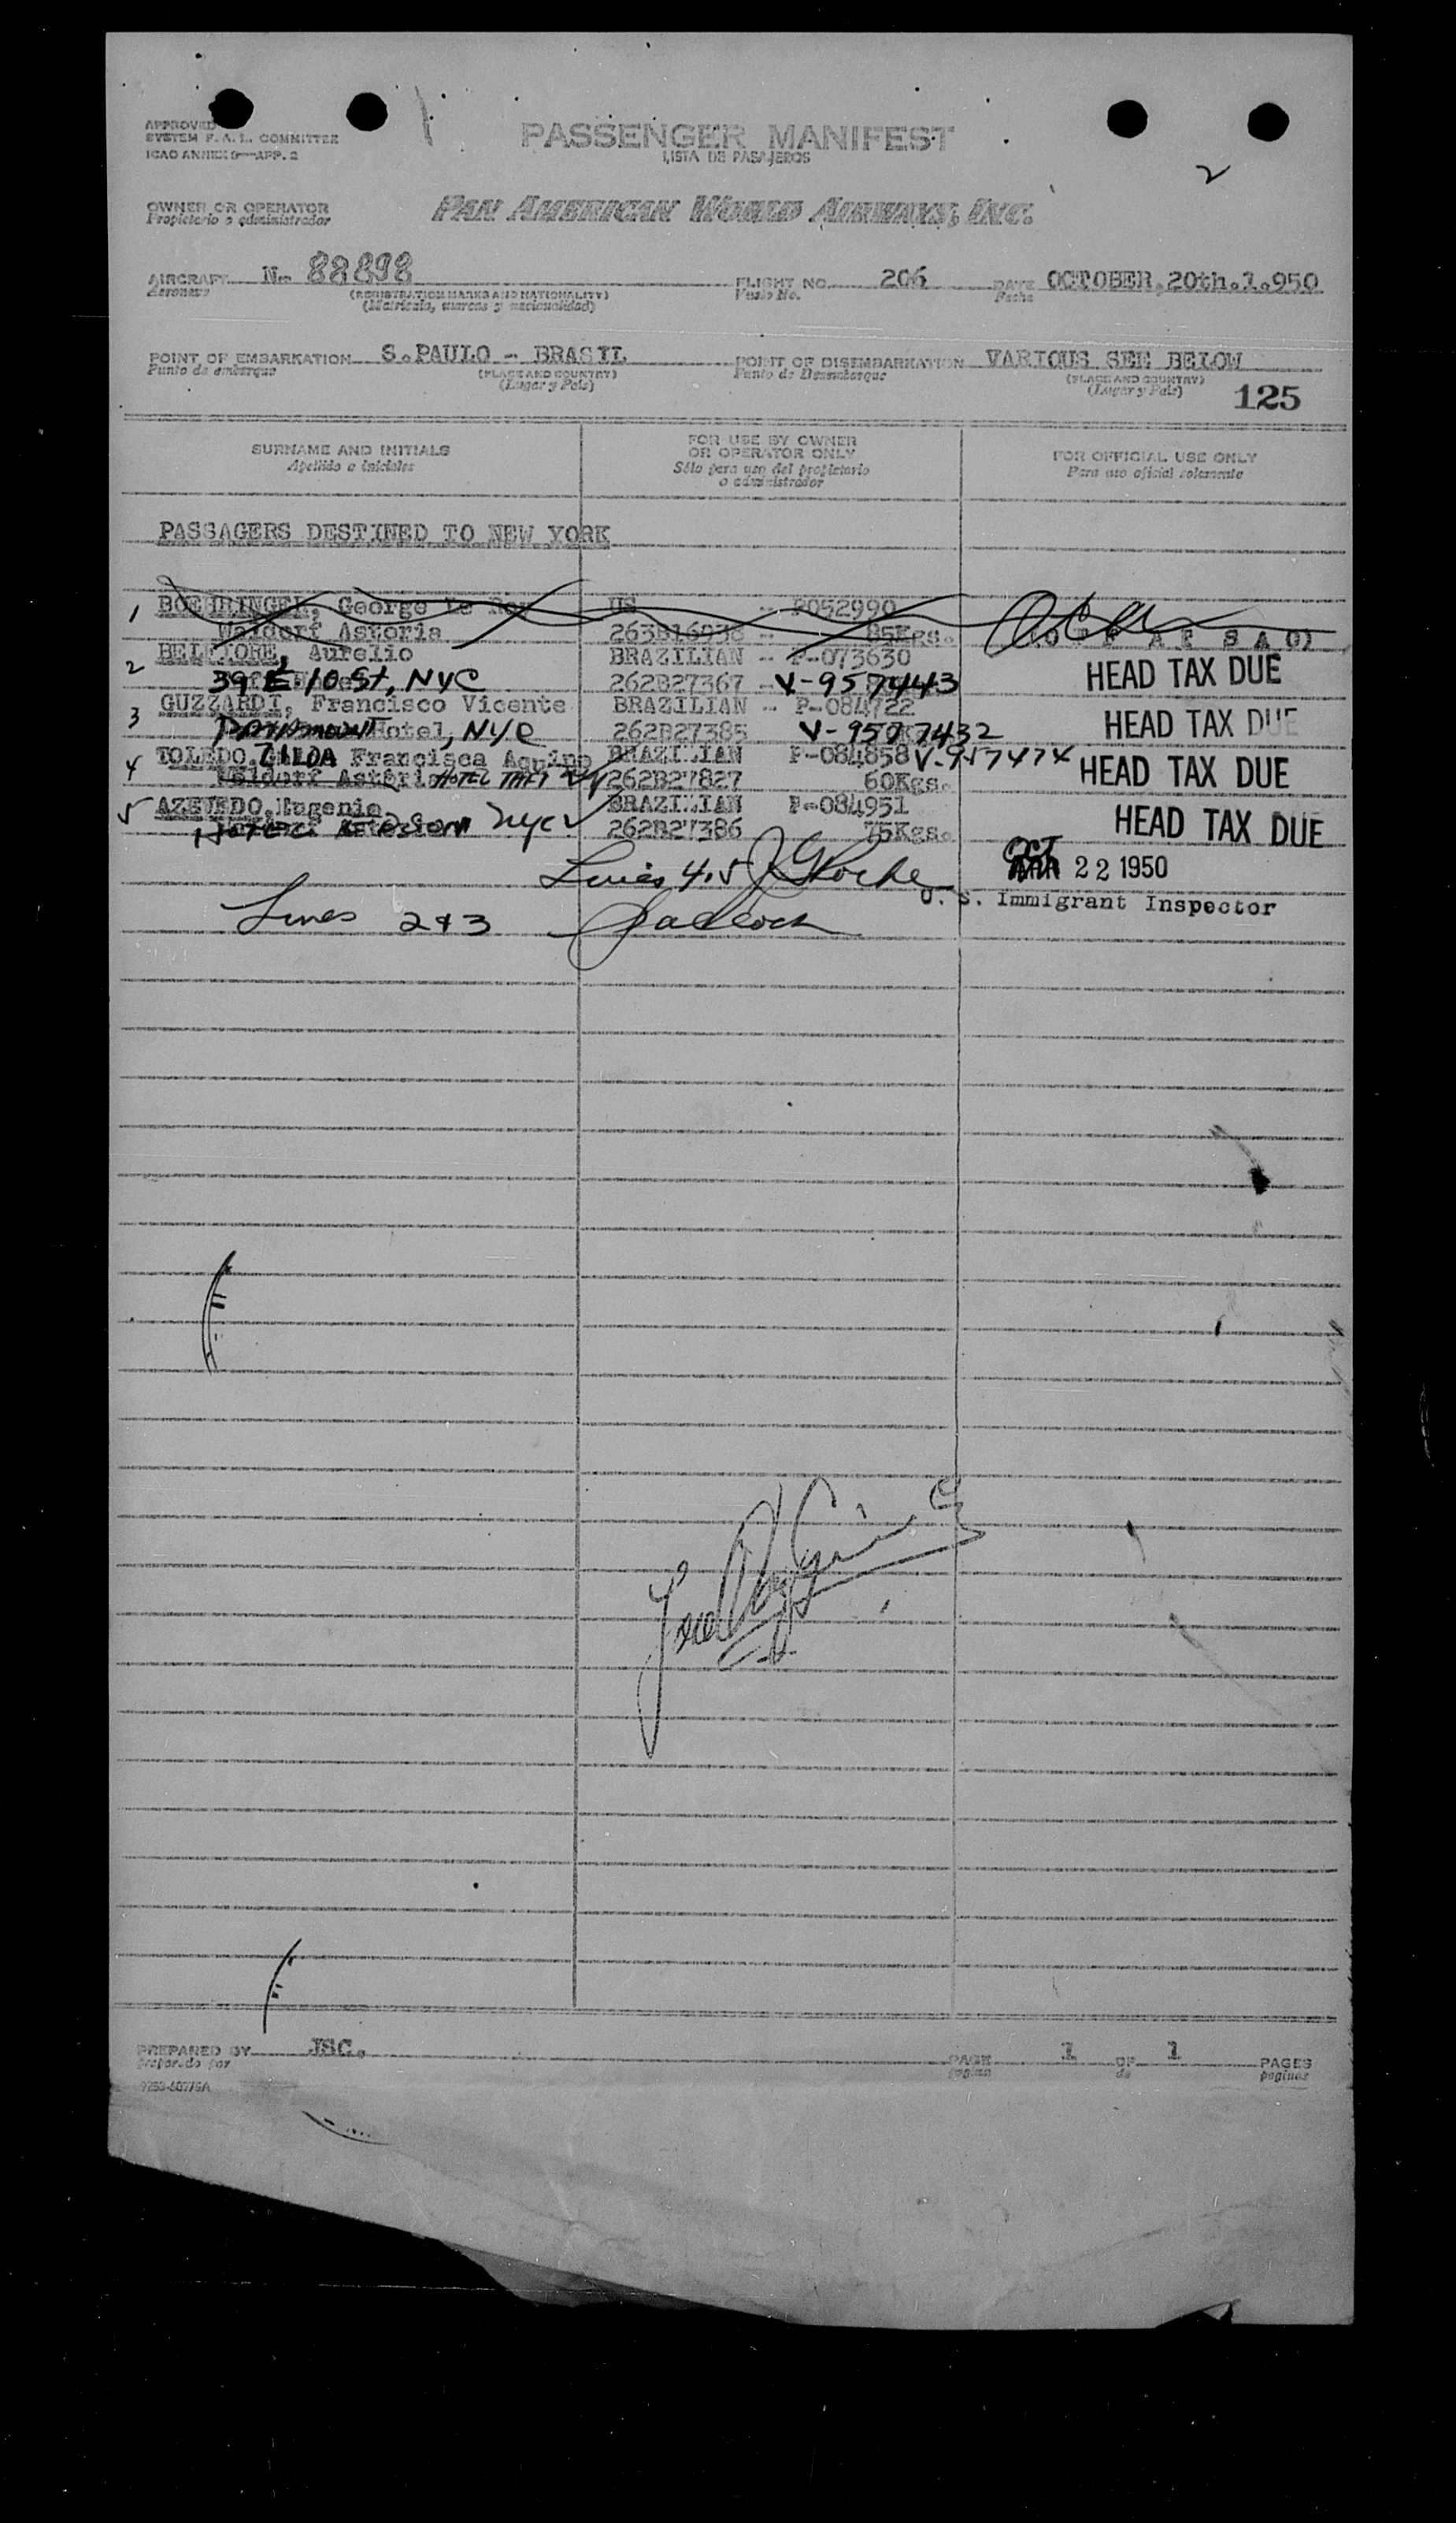 APPROVED
SYSTEM F.A.L. COMMITTEE
ICAO ANNEX 9—APP. 2
PASSENGER MANIFEST
LISTA DE PASAJEROS
2
OWNER OR OPERATOR
Propietario o administrador
PAN AMERICAN WORLD AIRWAYS, INC.
AIRCRAFT N- 88898 FLIGHT NO. 206 DATE OCTOBER, 20th.1.950
Aeronave (REGISTRATION MARKS AND NATIONALITY) Vuelo No. Fecha
(Matrícula, marcas y nacionalidad)
POINT OF EMBARKATION S.PAULO - BRASIL POINT OF DISEMBARKATION VARIOUS SEE BELOW
Punto de embarque (PLACE AND COUNTRY) Punto de Desembarque (PLACE AND COUNTRY)
(Lugar y País) (Lugar y País)
125
SURNAME AND INITIALS
Apellido e iniciales
FOR USE BY OWNER
OR OPERATOR ONLY
Sólo para uso del propietario
o administrador
FOR OFFICIAL USE ONLY
Para uso oficial solamente
PASSAGERS DESTINED TO NEW YORK
1 BOEHRINGER, George Le Ro US - P052990
Waldorf Astoria 263B16938 - 85Kgs.
2 BELFIORE, Aurelio BRAZILIAN - P-073630 HEAD TAX DUE
39 E. 10 St, NYC 262B27367 - V-957443
3 GUZZARDI, Francisco Vicente BRAZILIAN - P-084722 HEAD TAX DUE
PARAMOUNT Hotel, NYC 262B27385 V-957432
4 TOLEDO, ZILDA Francisca Aquino BRAZILIAN P-084858 V-957474 HEAD TAX DUE
Waldorf Astoria HOTEL TAFT 262B27827 60Kgs.
5 AZEVEDO, Eugenio BRAZILIAN P-084951 HEAD TAX DUE
HOTEL NYC 262B27386 75Kgs.
Lines 4.5 OCT 22 1950
U. S. Immigrant Inspector
Lines 2&3
PREPARED BY JBC. PAGE 1 OF 1 PAGES
preparado por pagina de paginas